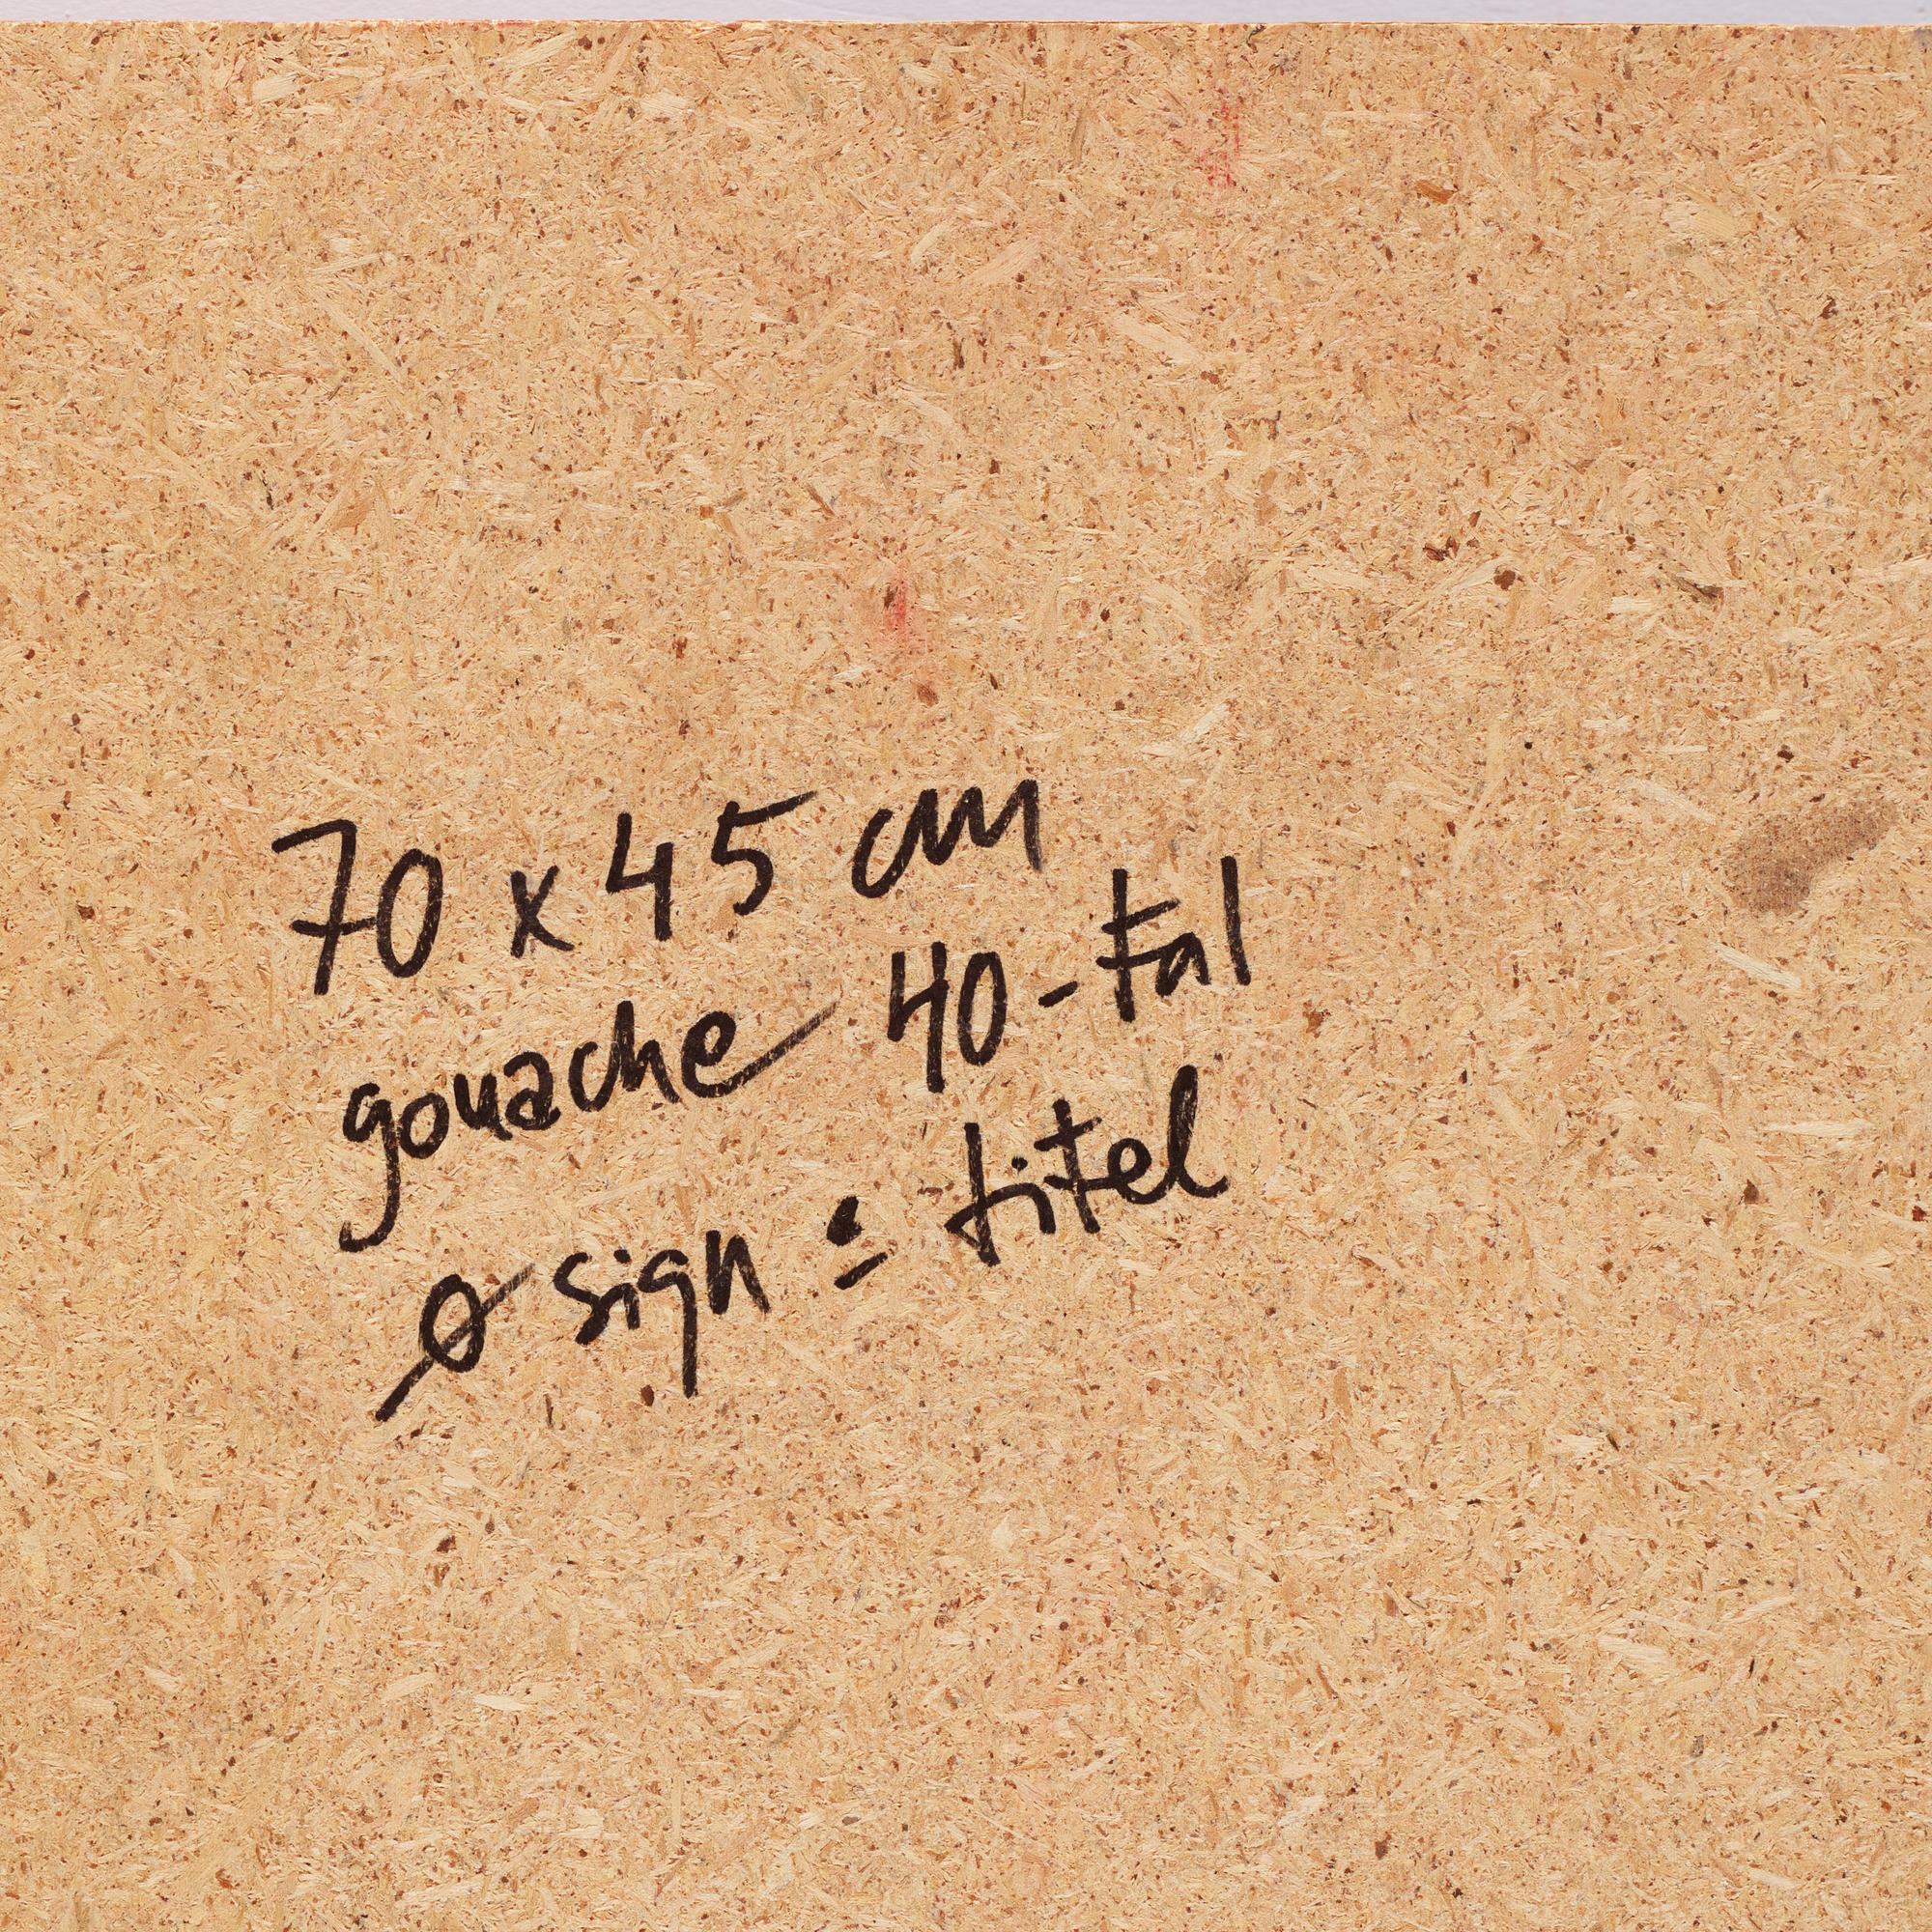 70 x 45 cm
gouache 40-tal
ø sign o titel